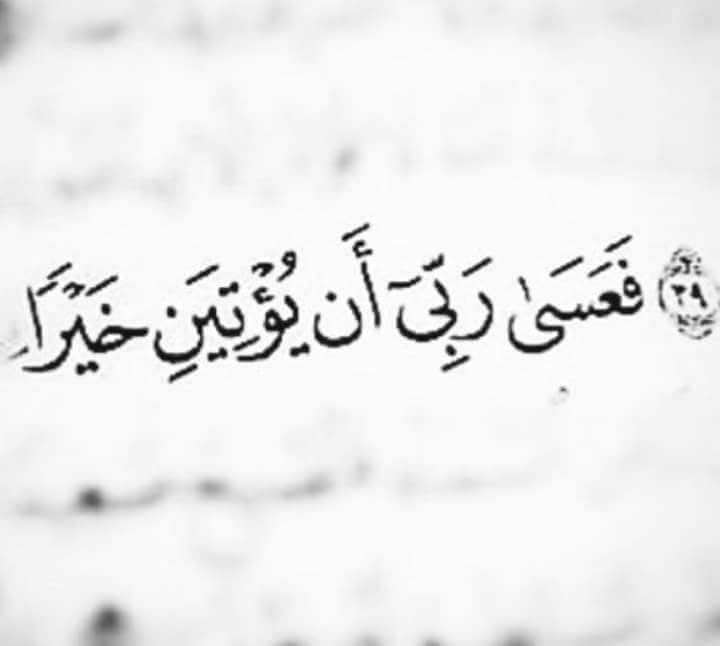 ٣٩ فَعَسَىٰ رَبِّىٓ أَن يُؤْتِيَنِ خَيْرًا